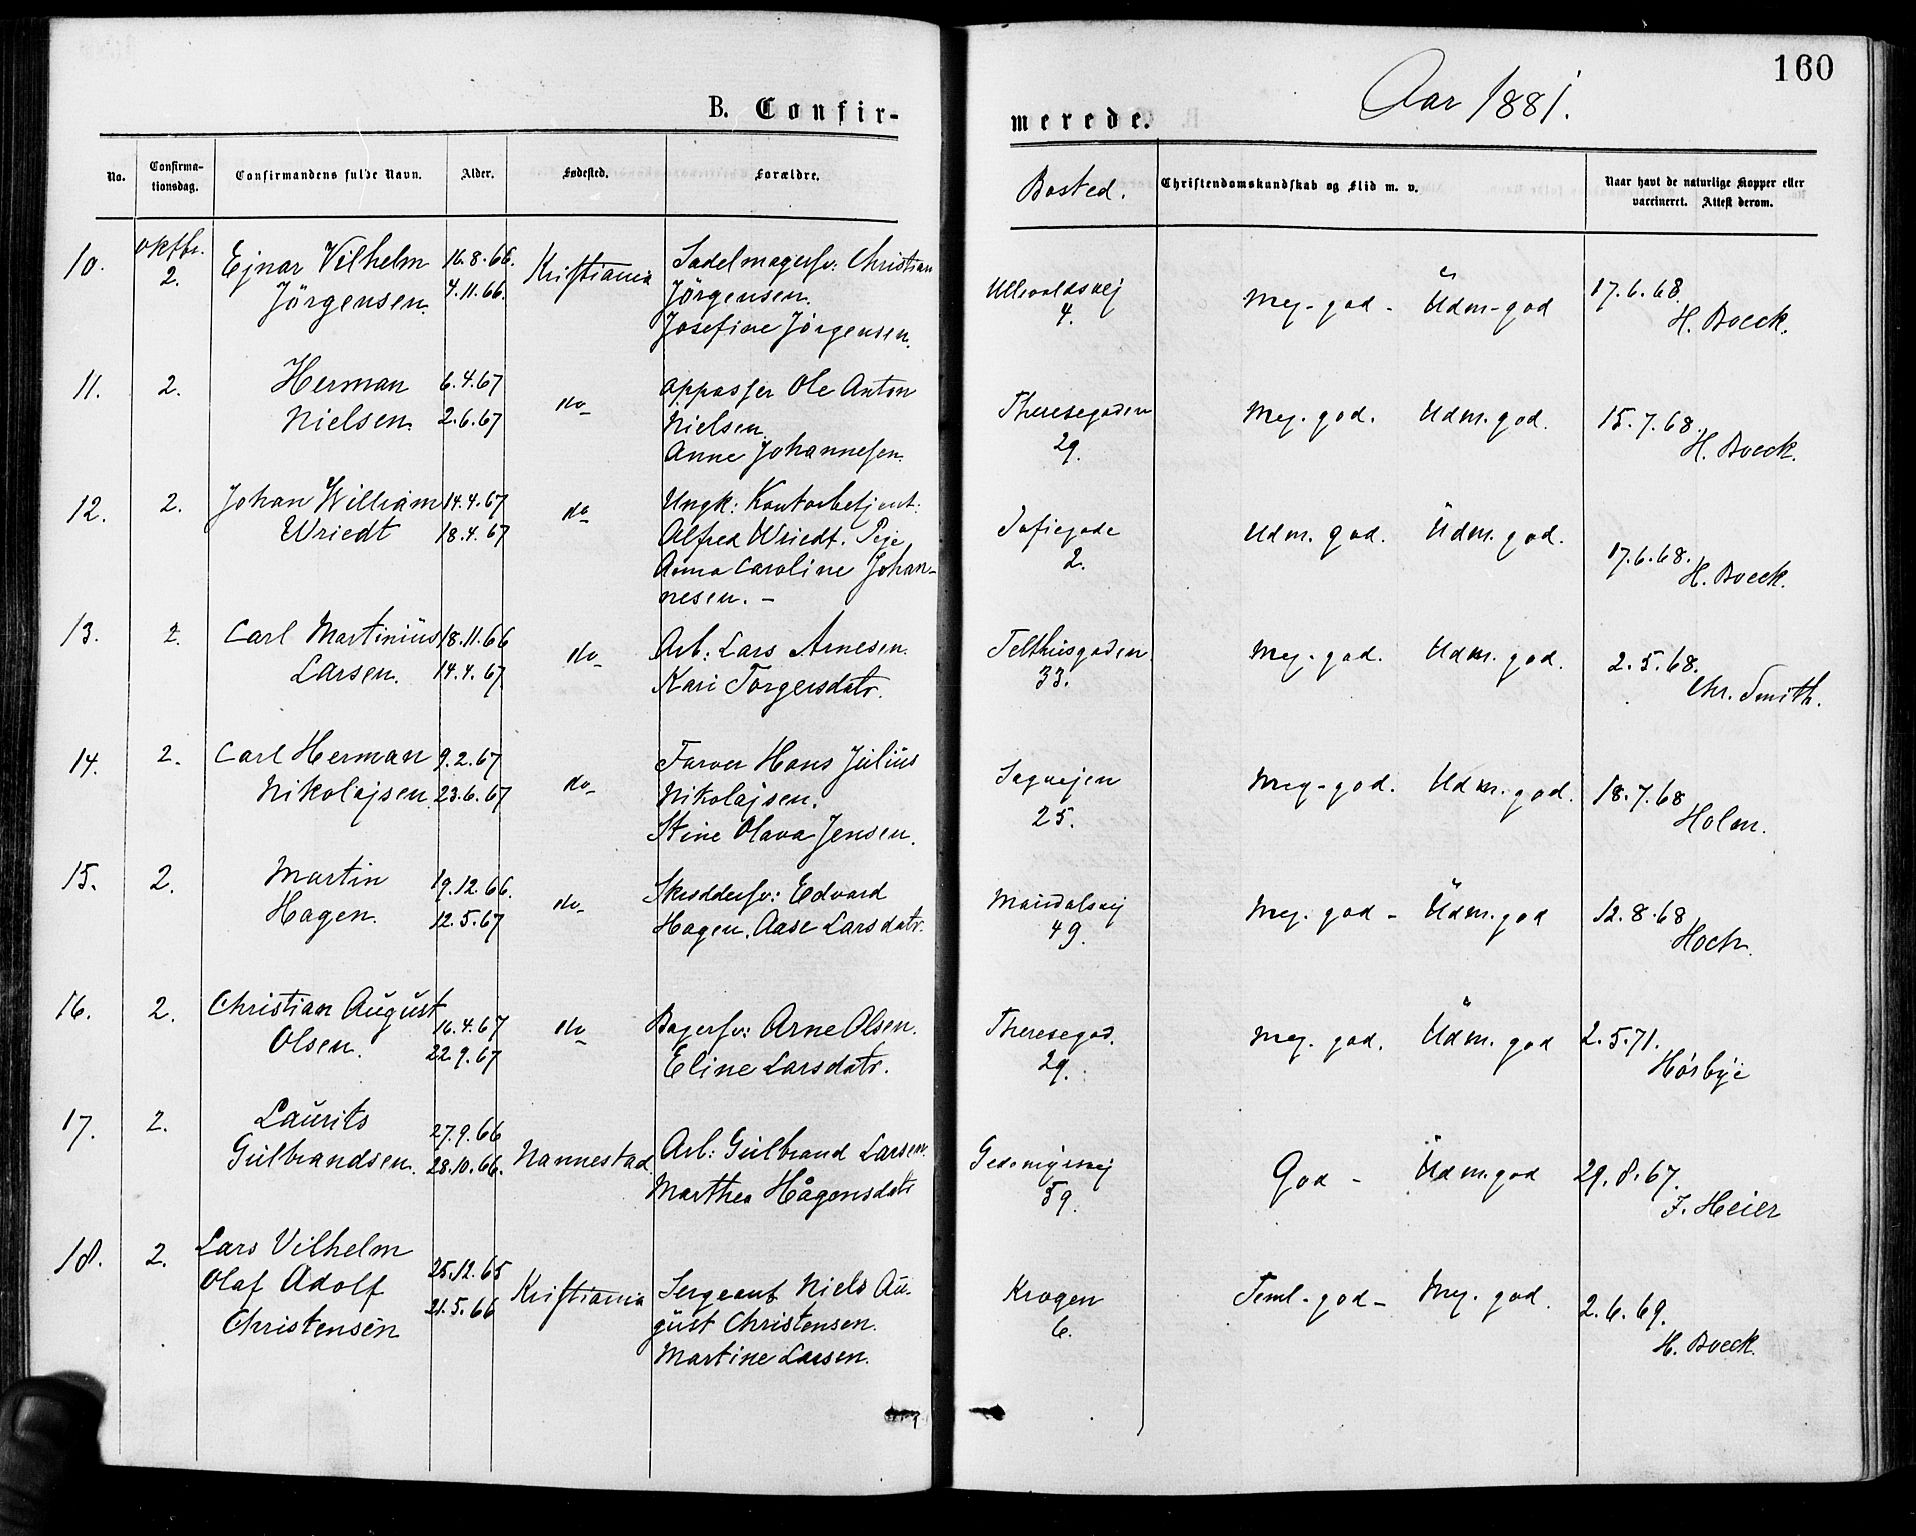 160
Aar 1881.
B. Confir-
merede.
No.
Confirma-
tionsdag.
Confirmandens fulde Navn.
Alder.
Fødested.
Forældre.
Bosted.
Christendomskundskab og Flid m. v.
Naar havt de naturlige Kopper eller
vaccineret. Attest derom.
10.
oktbr.
2.
Ejnar Vilhelm
Jörgensen.
16.8.66.
4.11.66.
Kristiania
Sadelmagersv: Christian
Jörgensen.
Josefine Jörgensen.
Ullevoldsvej
4.
Meg. god - Üdm. god
17.6.68.
H. Boeck.
11.
2.
Herman
Nielsen.
6.4.67
2.6.67
do
Oppasser Ole Anton
Nielsen.
Anne Johannesen.
Theresegaden
29.
Meg. god. Üdm. god.
15.7.68.
H. Boeck.
12.
2.
Johan William
Wriedt
14.4.67
18.4.67
do
Ungk: Kontorbetjent:
Alfred Wriedt. Pige
Anna Caroline Johan-
nesen. -
Sofiegade
2.
Udm. god. Üdm. god.
17.6.68.
H. Boeck.
13.
2.
Carl Martiniüs
Larsen.
18.11.66
14.4.67
do
Arb: Lars Arnesen.
Kari Torgersdatr.
Telthusgaden
33.
Meg. god. Udm. god.
2.5.68.
Chr. Smith.
14.
2.
Carl Herman
Nikolajsen.
9.2.67
23.6.67
do
Farver Hans Jülius
Nikolajsen.
Stine Olava Jensen.
Sagvejen
25.
Meg. god. Üdm. god.
18.7.68
Holm.
15.
2.
Martin
Hagen.
19.12.66.
12.5.67
do
Skreddersv: Edvard
Hagen. Aase Larsdatr.
Maridalsvej
49.
Meg. god - Üdm. god
12.8.68
Hoch.
16.
2.
Christian Aügüst
Olsen.
16.4.67
22.9.67
do
Bagersv: Arne Olsen.
Eline Larsdatr.
Theresegad.
29.
Meg. god. Üdm. god
2.5.71.
Hörbÿe
17.
2.
Laürits
Gülbrandsen.
27.9.66
28.10.66.
Nannestad.
Arb: Gülbrand Larsen.
Marthea Hågensdatr
59.
God - Üdm. god
29.8.67.
J. Heier
18.
2.
Lars Vilhelm
Olaf Adolf
Christensen
25.12.65
21.5.66
Kristiania
Sergeant Niels Aü-
güst Christensen.
Martine Larsen.
Krogen
6.
Teml. god - Mg. god.
2.6.69.
H. Boeck.